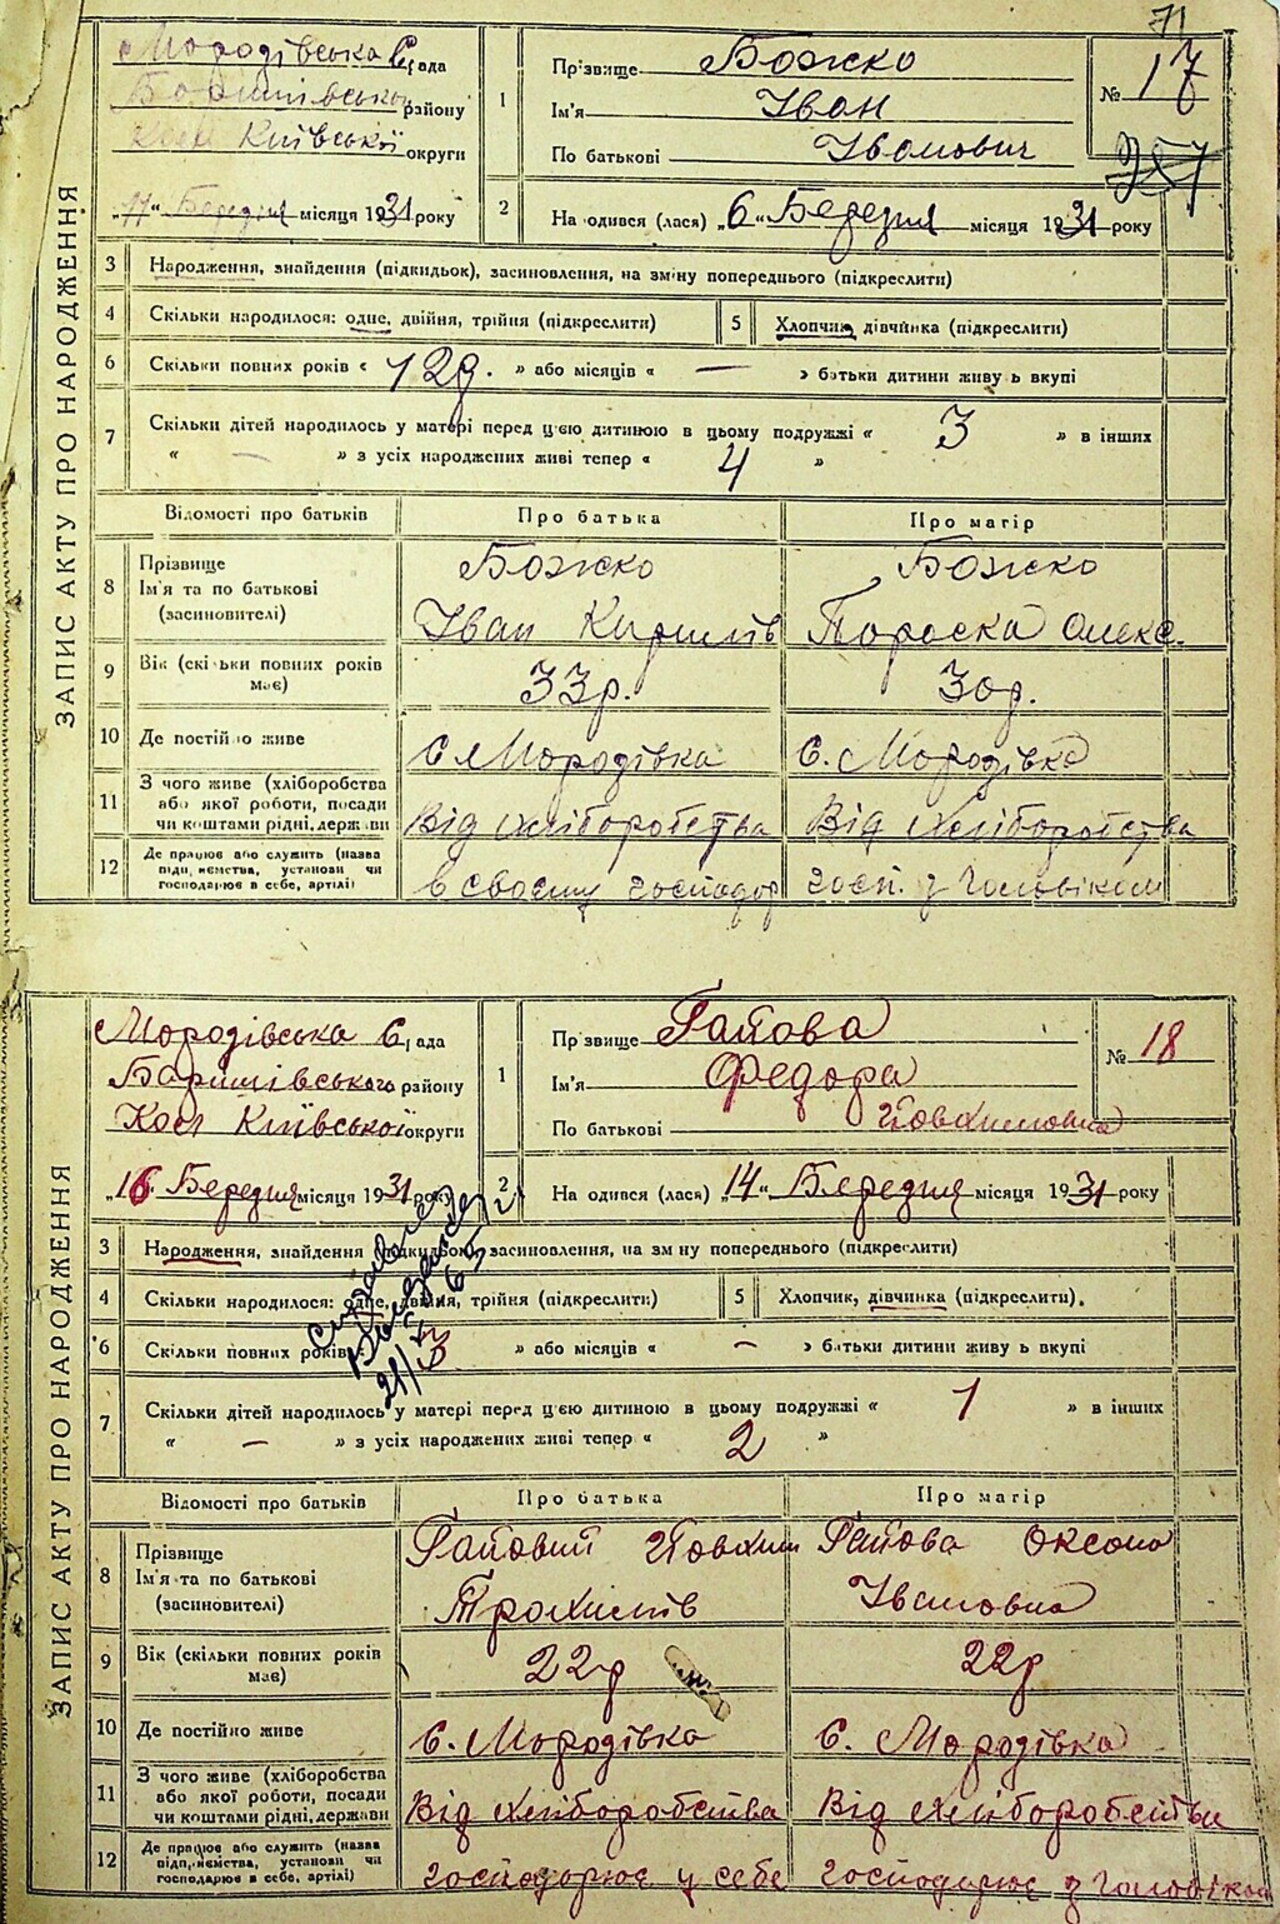 71
Мородівська С/рада
Баришівського району
Кол Київської округи
„17“ Березня місяця 1931 року
1
Прізвище Божко
Ім'я Іван
По батькові Іванович
№ 17
257
2
На одився (лася) „6“ Березня місяця 1931 року
ЗАПИС АКТУ ПРО НАРОДЖЕННЯ
3 Народження, знайдення (підкидьок), засиновлення, на зміну попереднього (підкреслити)
4 Скільки народилося: одне, двійня, трійня (підкреслити) 5 Хлопчик, дівчинка (підкреслити)
6 Скільки повних років « 12р. » або місяців « — » батьки дитини живу ь вкупі
7 Скільки дітей народилось у матері перед цією дитиною в цьому подружжі « 3 » в інших
« — » з усіх народжених живі тепер « 4 »
Відомості про батьків Про батька Про матір
8 Прізвище Божко Божко
Ім'я та по батькові
(засиновителі) Іван Кирилів Параска Олекс.
9 Вік (скільки повних років має) 33р. 30р.
10 Де постійно живе с Мородівка с. Мородівка
11 З чого живе (хліборобства
або якої роботи, посади
чи коштами рідні, держави Від хліборобства Від хліборобства
12 Де працює або служить (назва
підприємства, установи чи
господарює в себе, артілі) в своєму господар госп. з Чоловіком
Мородівська С/рада
Баришівського району
Кол Київської округи
„16“ Березня місяця 1931 року
1
Прізвище Гайова
Ім'я Федора
По батькові Йовхимовна
№ 18
2
На одився (лася) „14“ Березня місяця 1931 року
ЗАПИС АКТУ ПРО НАРОДЖЕННЯ
3 Народження, знайдення (підкидьок), засиновлення, на зміну попереднього (підкреслити)
4 Скільки народилося: одне, двійня, трійня (підкреслити) 5 Хлопчик, дівчинка (підкреслити).
6 Скільки повних років « 3 » або місяців « — » батьки дитини живу ь вкупі
7 Скільки дітей народилось у матері перед цією дитиною в цьому подружжі « 1 » в інших
« — » з усіх народжених живі тепер « 2 »
Відомості про батьків Про батька Про матір
8 Прізвище Гайовий Йовхим Гайова Оксана
Ім'я та по батькові
(засиновителі) Трохимів Івановна
9 Вік (скільки повних років має) 22р 22р
10 Де постійно живе с. Мородівка с. Мородівка
11 З чого живе (хліборобства
або якої роботи, посади
чи коштами рідні, держави Від хліборобства Від хліборобства
12 Де працює або служить (назва
підприємства, установи чи
господарює в себе, артілі) господарює у себе господарює з Чоловіком